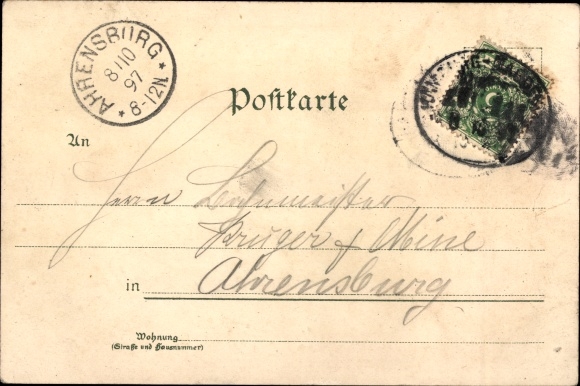 AHRENSBURG
8/10
97
* 8-12N. *
Postkarte
An
Herrn Bahnmeister
Krüger & Mine
in Ahrensburg
Wohnung
(Straße und Hausnummer)